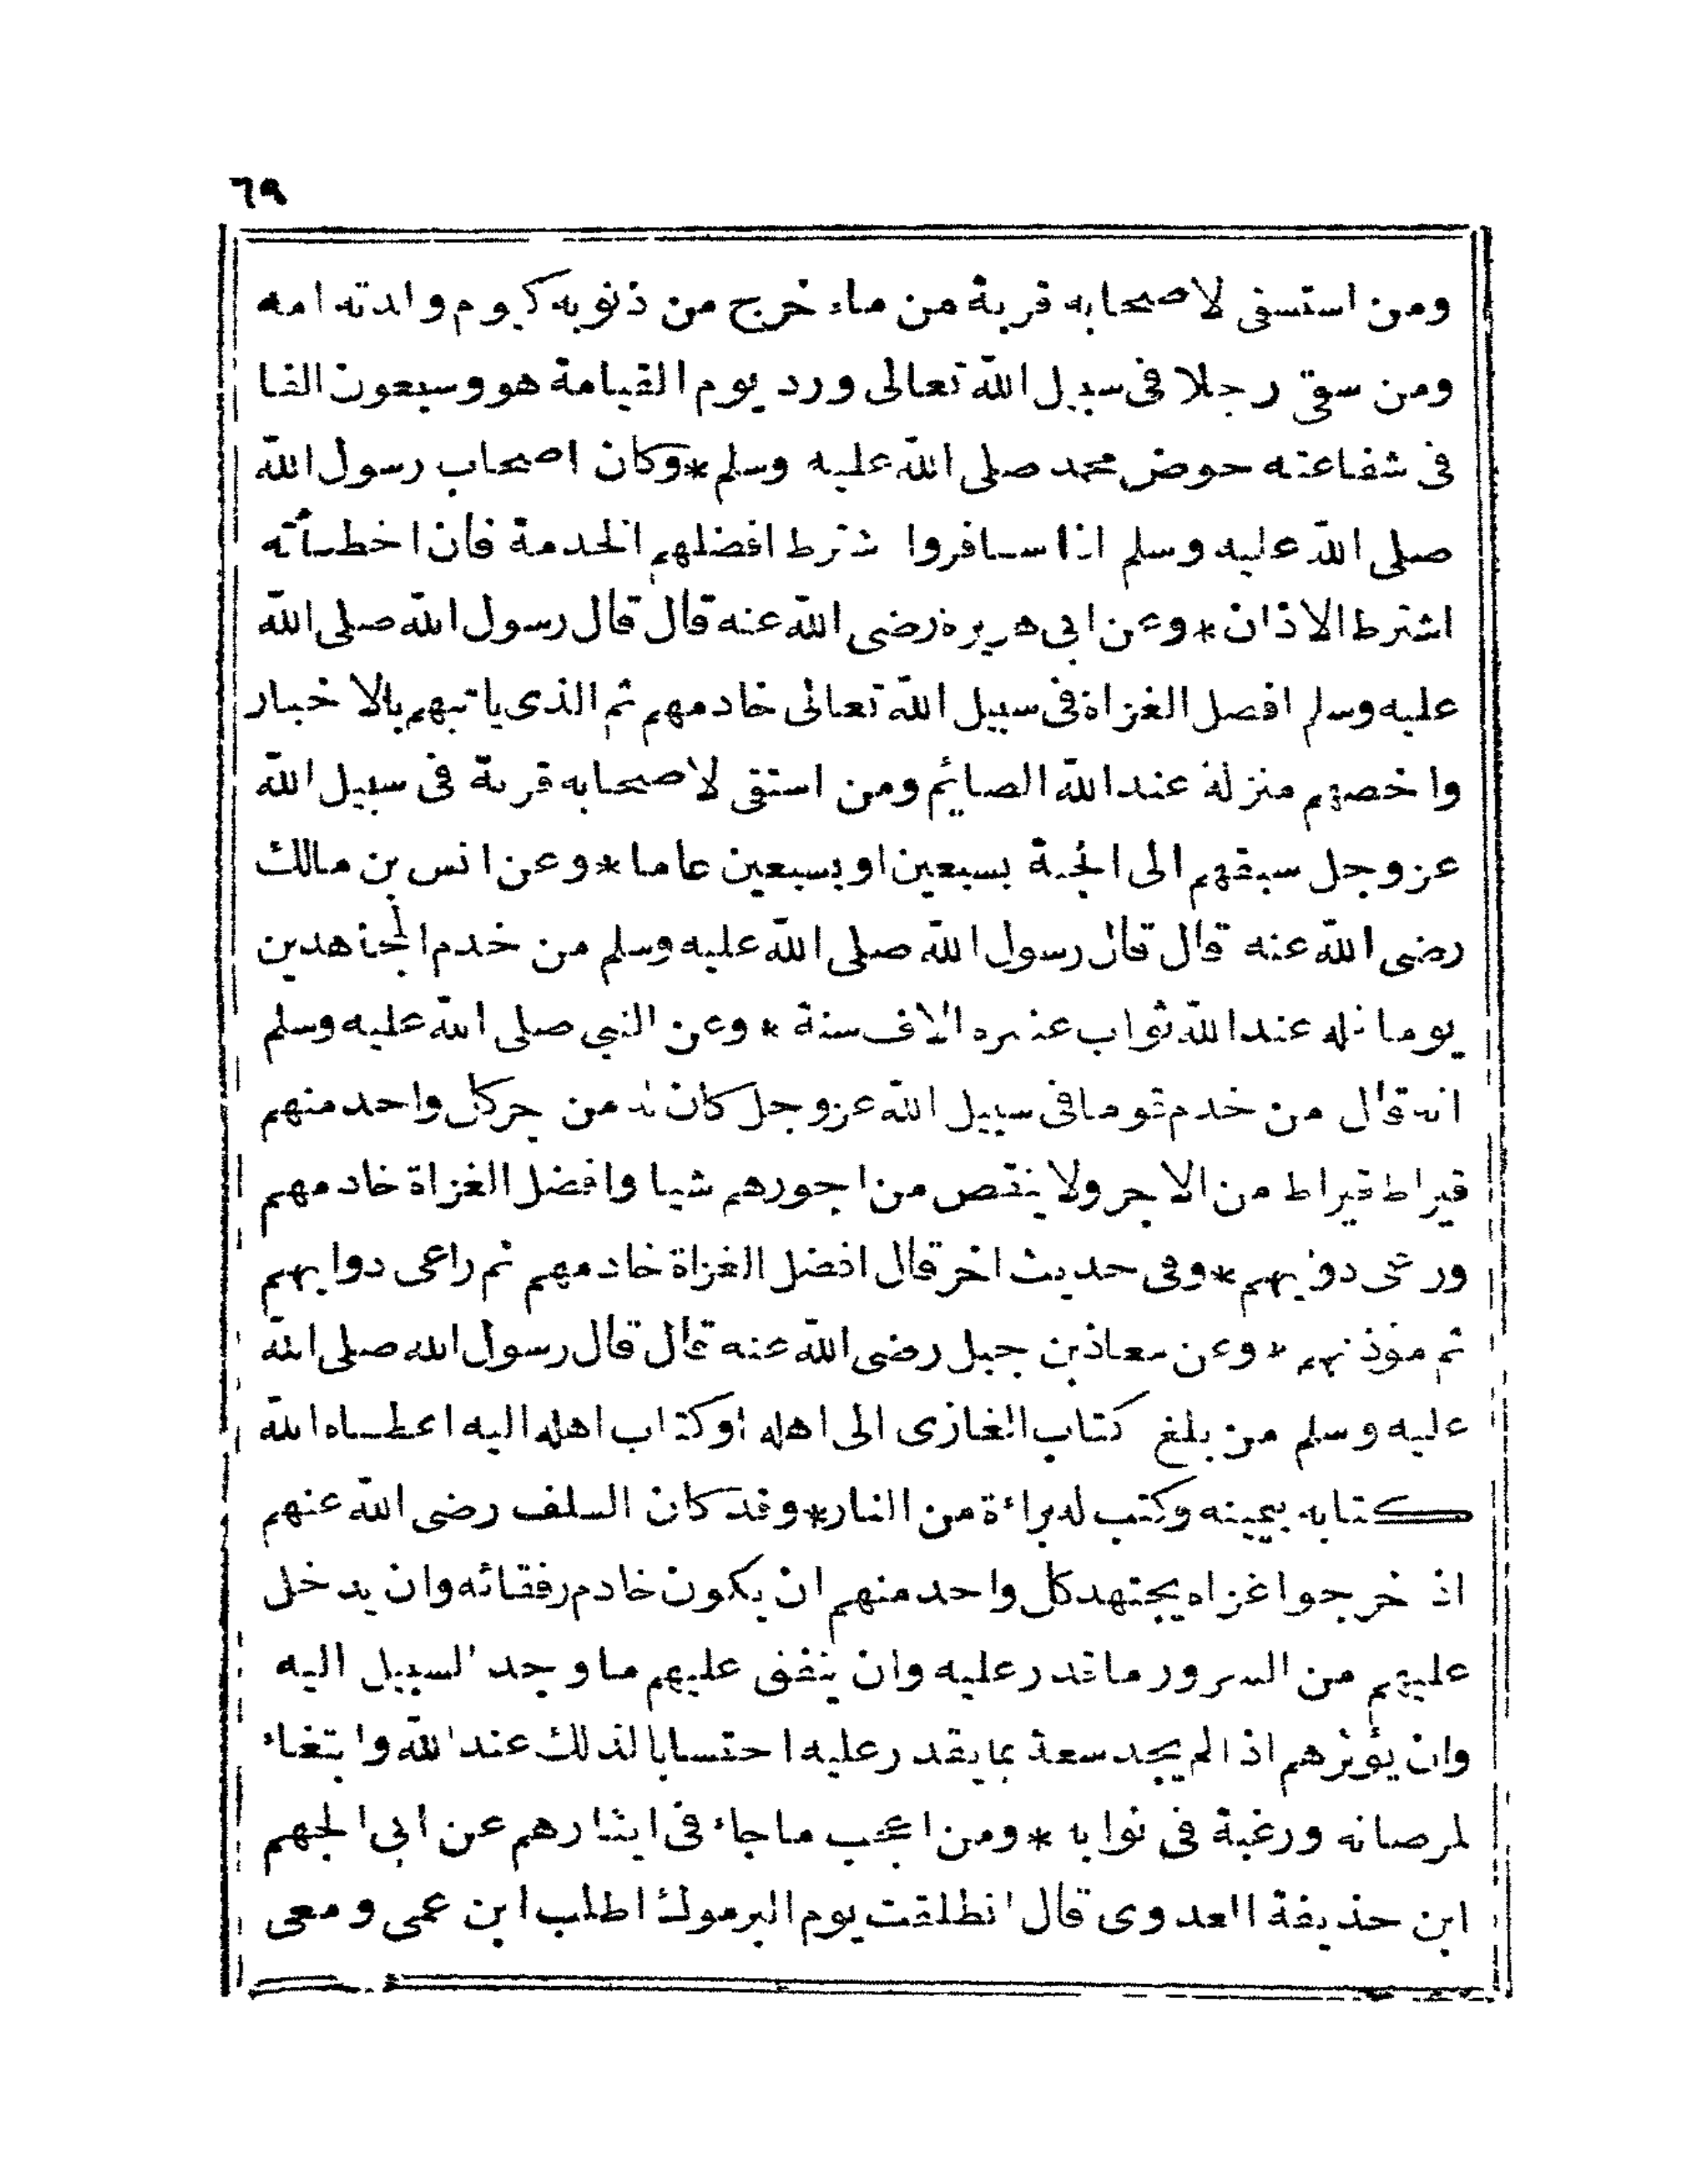 ٦٩
ومن استسقى لاصحابه قربة من ماء خرج من ذنوبه كيوم ولدته امه
ومن سقى رجلا فى سبيل الله تعالى ورد يوم القيامة هو وسبعون الفا
فى شفاعته حوض محمد صلى الله عليه وسلم * وكان اصحاب رسول الله
صلى الله عليه وسلم اذا سافروا شترط افضلهم الخدمة فان اخطأته
اشترط الاذان * وعن ابى هريرة رضى الله عنه قال قال رسول الله صلى الله
عليه وسلم افضل الغزاة فى سبيل الله تعالى خادمهم ثم الذى ياتيهم بالاخبار
واخصهم منزلة عند الله الصائم ومن استقى لاصحابه قربة فى سبيل الله
عز وجل سبقهم الى الجنة بسبعين او بسبعين عاما * وعن انس بن مالك
رضى الله عنه قال قال رسول الله صلى الله عليه وسلم من خدم المجاهدين
يوما فله عند الله ثواب عشره الاف سنة * وعن النبي صلى الله عليه وسلم
انه قال من خدم قوما فى سبيل الله عز وجل كان له من جر كل واحد منهم
قيراط قيراط من الاجر ولا ينقص من اجورهم شيا وافضل الغزاة خادمهم
ورعى دوابهم * وفى حديث اخر قال افضل الغزاة خادمهم ثم راعى دوابهم
ثم موذنهم * وعن معاذ بن جبل رضى الله عنه قال قال رسول الله صلى الله
عليه وسلم من بلغ كتاب الغازى الى اهله او كتاب اهله اليه اعطاه الله
كتابه بيمينه وكتب له براءة من النار * وقد كان السلف رضى الله عنهم
اذ خرجوا غزاه يجتهد كل واحد منهم ان يكون خادم رفقائه وان يدخل
عليهم من السرور ما قدر عليه وان ينفق عليهم ما وجد السبيل اليه
وان يؤثرهم اذا لم يجد سعة بما يقدر عليه احتسابا لذلك عند الله وابتغاء
لمرضاته ورغبة فى ثوابه * ومن اعجب ما جاء فى ايثارهم عن ابى الجهم
ابن حذيفة العدوى قال انطلقت يوم اليرموك اطلب ابن عمى ومعى